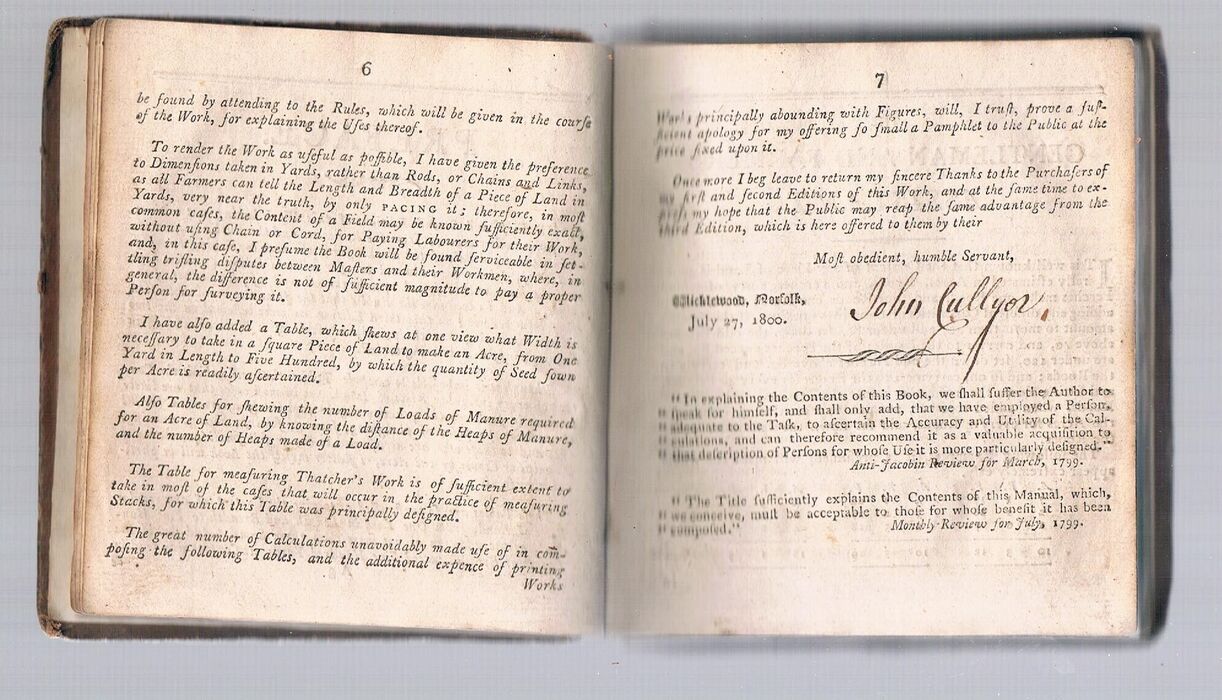 6
be found by attending to the Rules, which will be given in the courſe
of the Work, for explaining the Uſes thereof.
To render the Work as uſeful as poſſible, I have given the preference
to Dimenſions taken in Yards, rather than Rods, or Chains and Links,
as all Farmers can tell the Length and Breadth of a Piece of Land in
Yards, very near the truth, by only PACING it; therefore, in moſt
common caſes, the Content of a Field may be known ſufficiently exact,
without uſing Chain or Cord, for Paying Labourers for their Work,
and, in this caſe, I preſume the Book will be found ſerviceable in ſet-
tling trifling diſputes between Maſters and their Workmen, where, in
general, the difference is not of ſufficient magnitude to pay a proper
Perſon for ſurveying it.
I have alſo added a Table, which ſhews at one view what Width is
neceſſary to take in a ſquare Piece of Land to make an Acre, from One
Yard in Length to Five Hundred, by which the quantity of Seed ſown
per Acre is readily aſcertained.
Alſo Tables for ſhewing the number of Loads of Manure required
for an Acre of Land, by knowing the diſtance of the Heaps of Manure,
and the number of Heaps made of a Load.
The Table for meaſuring Thatcher's Work is of ſufficient extent to
take in moſt of the caſes that will occur in the practice of meaſuring
Stacks, for which this Table was principally deſigned.
The great number of Calculations unavoidably made uſe of in com-
poſing the following Tables, and the additional expence of printing
Works
7
Works principally abounding with Figures, will, I truſt, prove a ſuf-
ficient apology for my offering ſo ſmall a Pamphlet to the Public at the
price fixed upon it.
Once more I beg leave to return my ſincere Thanks to the Purchaſers of
my firſt and ſecond Editions of this Work, and at the ſame time to ex-
preſs my hope that the Public may reap the ſame advantage from the
third Edition, which is here offered to them by their
Moſt obedient, humble Servant,
Wicklewood, Norfolk,
July 27, 1800.
John Cullyer
"In explaining the Contents of this Book, we ſhall ſuffer the Author to
" ſpeak for himſelf, and ſhall only add, that we have employed a Perſon,
" adequate to the Taſk, to aſcertain the Accuracy and Utility of the Cal-
" culations, and can therefore recommend it as a valuable acquiſition to
" that deſcription of Perſons for whoſe Uſe it is more particularly deſigned."
Anti-Jacobin Review for March, 1799.
" The Title ſufficiently explains the Contents of this Manual, which,
" we conceive, muſt be acceptable to thoſe for whoſe benefit it has been
" compoſed."
Monthly Review for July, 1799.